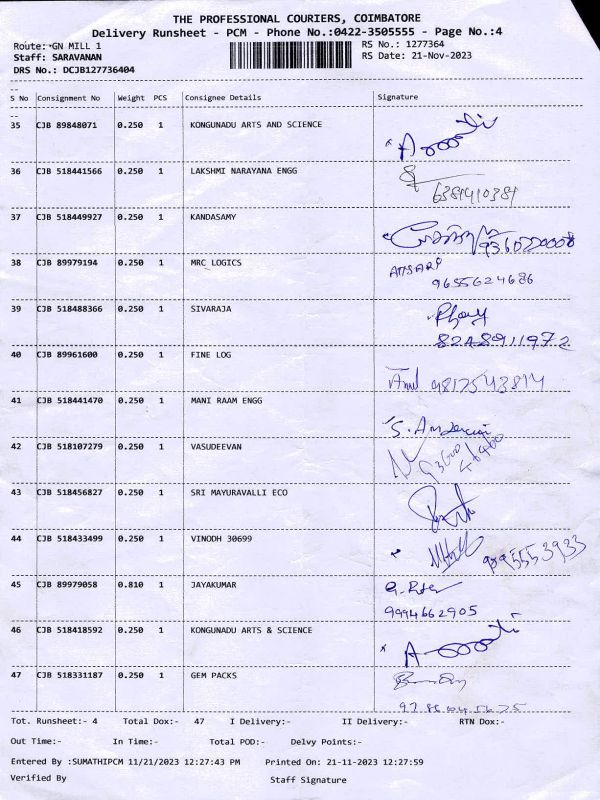 THE PROFESSIONAL COURIERS, COIMBATORE
Delivery Runsheet - PCM - Phone No.:0422-3505555 - Page No.:4
Route: GN MILL 1
RS No.: 1277364
Staff: SARAVANAN
RS Date: 21-Nov-2023
DRS No.: DCJB127736404
S No Consignment No Weight PCS Consignee Details Signature
35 CJB 89848071 0.250 1 KONGUNADU ARTS AND SCIENCE
36 CJB 518441566 0.250 1 LAKSHMI NARAYANA ENGG
6381410381
37 CJB 518449927 0.250 1 KANDASAMY
38 CJB 89979194 0.250 1 MRC LOGICS
ANSARI
9655624686
39 CJB 518488366 0.250 1 SIVARAJA
8248911972
40 CJB 89961600 0.250 1 FINE LOG
Anil 9817543814
41 CJB 518441470 0.250 1 MANI RAAM ENGG
42 CJB 518107279 0.250 1 VASUDEEVAN
43 CJB 518456827 0.250 1 SRI MAYURAVALLI ECO
44 CJB 518433499 0.250 1 VINODH 30699
45 CJB 89979058 0.810 1 JAYAKUMAR
9994662905
46 CJB 518418592 0.250 1 KONGUNADU ARTS & SCIENCE
47 CJB 518331187 0.250 1 GEM PACKS
Tot. Runsheet:- 4 Total Dox:- 47 I Delivery:- II Delivery:- RTN Dox:-
Out Time:- In Time:- Total POD:- Delvy Points:-
Entered By :SUMATHIPCM 11/21/2023 12:27:43 PM Printed On: 21-11-2023 12:27:59
Verified By Staff Signature